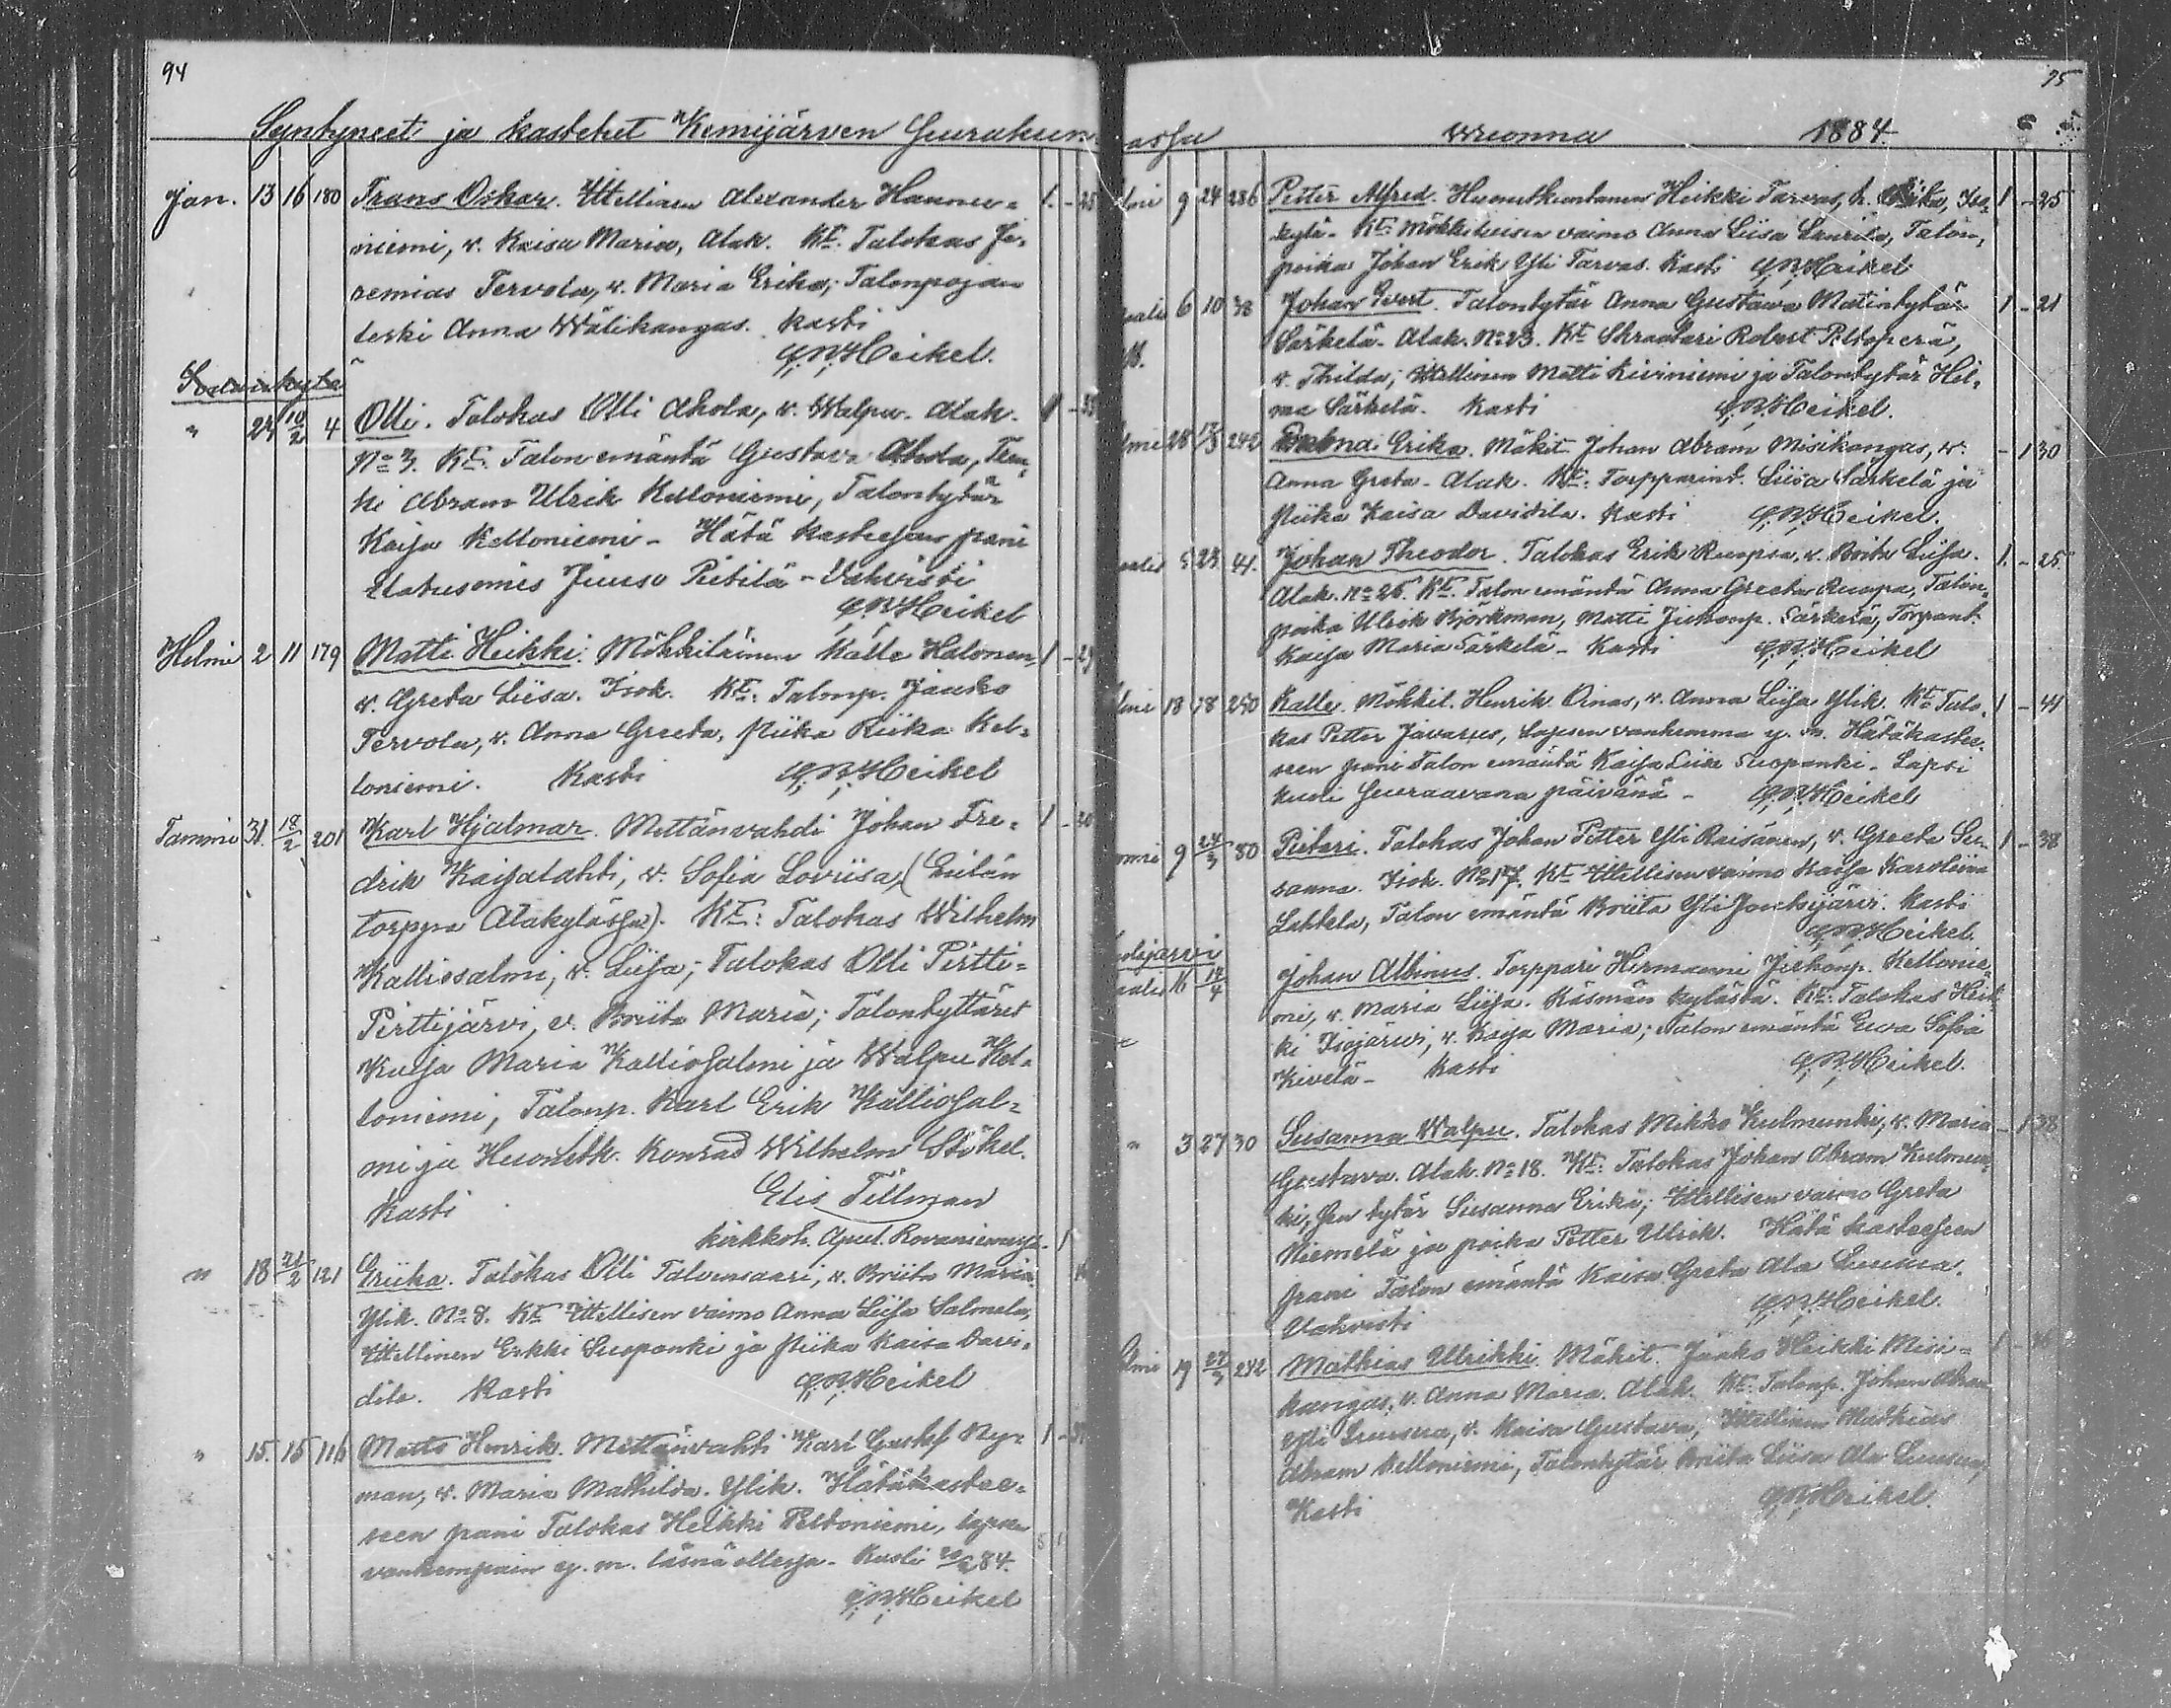 94
Syntyneet ja kastetut Kemijärven Seurakun
Jan. 13 16 180 Frans Oskar. Ittellinen Alexander Hannu=
niemi, v. Kaisa Maria, Alak. Kt. Talokas Je=
remias Tervola, v. Maria Erika; Talonpojan
leski Anna Wälikangas. Kasti
Heikel.
" 24 10/2 4 Olli. Talokas Olli Ahola, v. Walpu. Alak.
No 3. Kt. Talon emäntä Gustava Ahola,
ki Abram Ulrik Kelloniemi, Talontytär
Kaisa Kelloniemi - Hätä kasteesen pani
Juuso Pietilä - Vahvisti
Heikel
Helmi 2 11 179 Matti Heikki. Mökkiläinen Kalle Halonen, 1 - 29
v. Greta Liisa. Isok. Kt: Talonp. Jaako
Tervola, v. Anna Greeta, Piika Riika Kel=
loniemi. Kasti Heikel
Tammi 31. 18/2 201 Karl Hjalmar. Mettänvahdi Johan Fre=
drik Kaisalahti, v. Sofia Loviisa, (
torppa Alakylässä). Kt: Talokas Wilhelm
Kallissalmi, v. Liisa; Talokas Olli Pirtti=
Pirttijärvi, v. Briita Maria; Talontyttäret
Kaisa Maria Kalliosalmi ja Walpu Kel=
loniemi, Talonp. Karl Erik Kalliosal=
mi ja Huonetk. Konrad Wilhelm Stöhel.
Kasti Elis Tillman
kirkkoh. Apul. Rovaniemessä.
" 18 21/2 121 Eriika. Talokas Olli Talvensaari, v. Briita Maria.
Ylik. No 8. Kt Ittellisen vaimo Anna Liisa Salmela,
Ittellinen Erkki Suopanki ja Piika Kaisa Davi=
dila. Kasti Heikel
" 15. 15 116 Matts Henrik. Mettänvahti Karl Gustaf Ny=
man, v. Maria Mathilda. Ylik. Hätäkastee=
seen pani Talokas Heikki Peltoniemi, lapsen
vanhempain y. m. läsnä ollessa. Kuoli 20/2 84.
Heikel
95
assa vuonna 1884.
9 24 286 Petter Alfred. Huonetkuntanen Heikki Tarvas, Iso=
kylä. Kt: Mökkiläisen vaimo Anna Liisa Laurila, Talon,
poika Johan Erik Yli Tarvas. Kasti Heikel
6 10 38 Johan Evert. Talontytär Anna Gustava Matintytär 1 - 21
Särkelä. Alak. No 23. Kt Skraatari Robert Peltoperä,
v. Thilda; Ittellinen Matti Kiviniemi ja Talontytär Hel=
ma Särkelä. Kasti Heikel.
28 242 Erika. Mökit. Johan Abram Misikangas, v. - 1 30
Anna Greta. Alak. Kt: Torpparint. Liisa Särkelä ja
Piika Kaisa Davidila. Kasti Heikel.
5 23 41. Johan Theodor. Talokas Erik Ruopsa, v. Briita Liisa. 1. - 25.
Alak. No 26. Kt. Talon emäntä Anna Greeta Ruopsa, Talon=
poika Ulrik Björkman, Matti Särkelä,
Kaisa Maria Särkelä - Kasti Heikel
18 18 250 Kalle. Mökkil. Henrik Oinas, v. Anna Liisa Ylik. Kt: Talo, 1 - 44
kas Petter Javarus, Lapsen vanhemma y. m. Hätäkastee,
seen pani Talon emäntä Kaisa Liisa Suopanki. Lapsi
kuoli seuraavana päivänä - Heikel
9 24/3 80 Pietari. Talokas Johan Petter Yli Räisänen, v. Greeta Su= 1 - 38
sanna. Isok. No 17. Kt Ittellisen vaimo Kaisa Karoliina
Lehtela, Talon emäntä Briita Yli Kasti
Heikel.
16 14/4 Johan Albinus. Torppari Hermanni Kellonie=
mi, v. Maria Liisa. Käsmän kylästä. Kt: Talokas Heik=
ki Isojärvi, v. Kaisa Maria; Talon emäntä Eeva Sofia
Kivelä - Kasti Heikel.
" 3 27 30 Susanna Walpu. Talokas Mikko Kulmunki, v. Maria - 1 38
Gustava. Alak. No 18. Kt: Talokas Johan Abram Kulmun=
ki, sen tytär Susanna Erika; Ittellisen vaimo Greta
Niemelä ja poika Petter Ulrik. Hätä kasteeseen
pani Talon emäntä Kaisa Greta Ala Luusua.
Vahvisti Heikel.
19 27/3 242 Mathias Ulrikki. Mökit. Jaako Heikki Misi=
kangas, v. Anna Maria. Alak. Kt: Talonp. Johan
Yli Luusua, v. Kaisa Gustava; Ittellinen Mathias
Abram Kelloniemi, Talontytär Briita Liisa Ala Luusua,
Kasti Heikel.